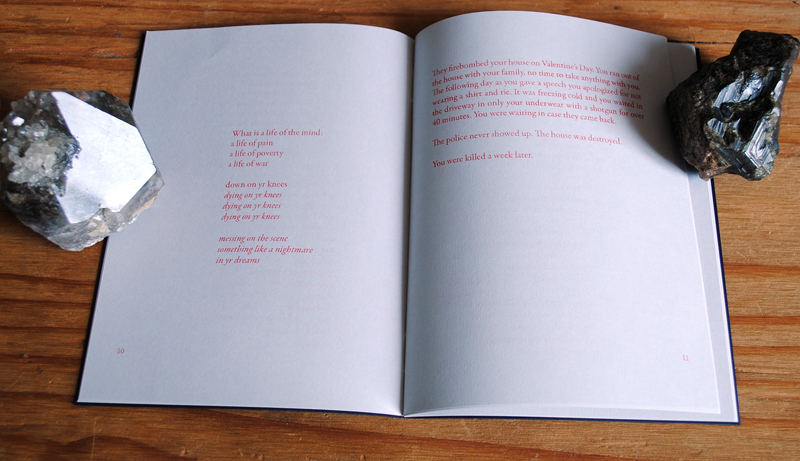 What is a life of the mind:
a life of pain
a life of poverty
a life of war
down on yr knees
dying on yr knees
dying on yr knees
dying on yr knees
messing on the scene
something like a nightmare
in yr dreams
10
They firebombed your house on Valentine's Day. You ran out of
the house with your family, no time to take anything with you.
The following day as you gave a speech you apologized for not
wearing a shirt and tie. It was freezing cold and you waited in
the driveway in only your underwear with a shotgun for over
40 minutes. You were waiting in case they came back.
The police never showed up. The house was destroyed.
You were killed a week later.
11